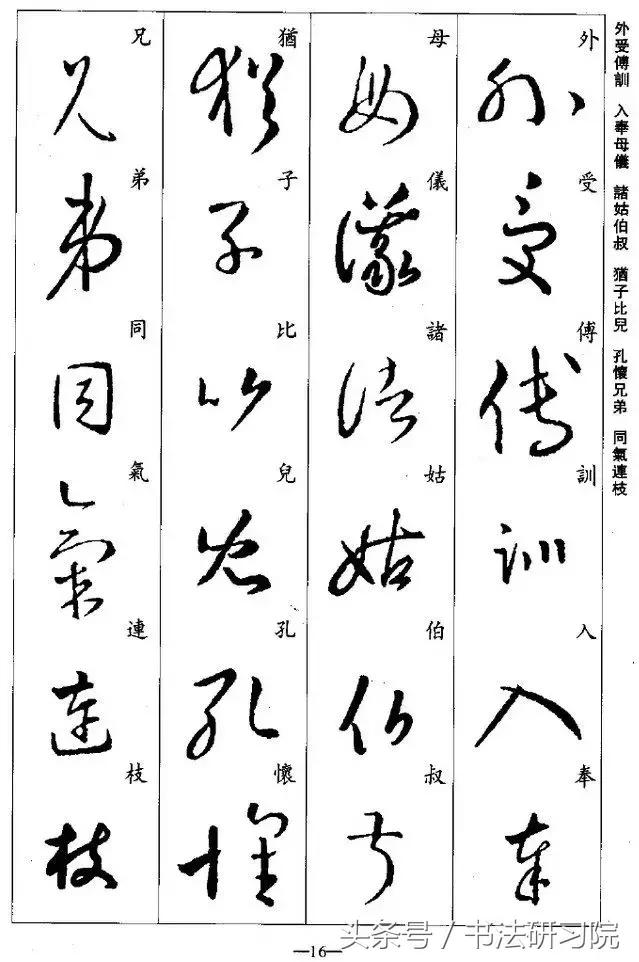 外受傅訓 入奉母儀 諸姑伯叔 猶子比兒 孔懷兄弟 同氣連枝
外受傅訓入奉
母儀諸姑伯叔
猶子比兒孔懷
兄弟同氣連枝
—16—
头条号 / 书法研习院